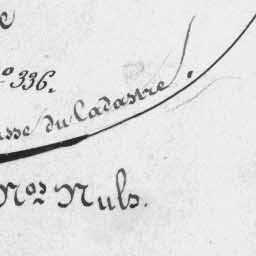 e
º 336.
asse du Cadastre.
Nos Nuls.